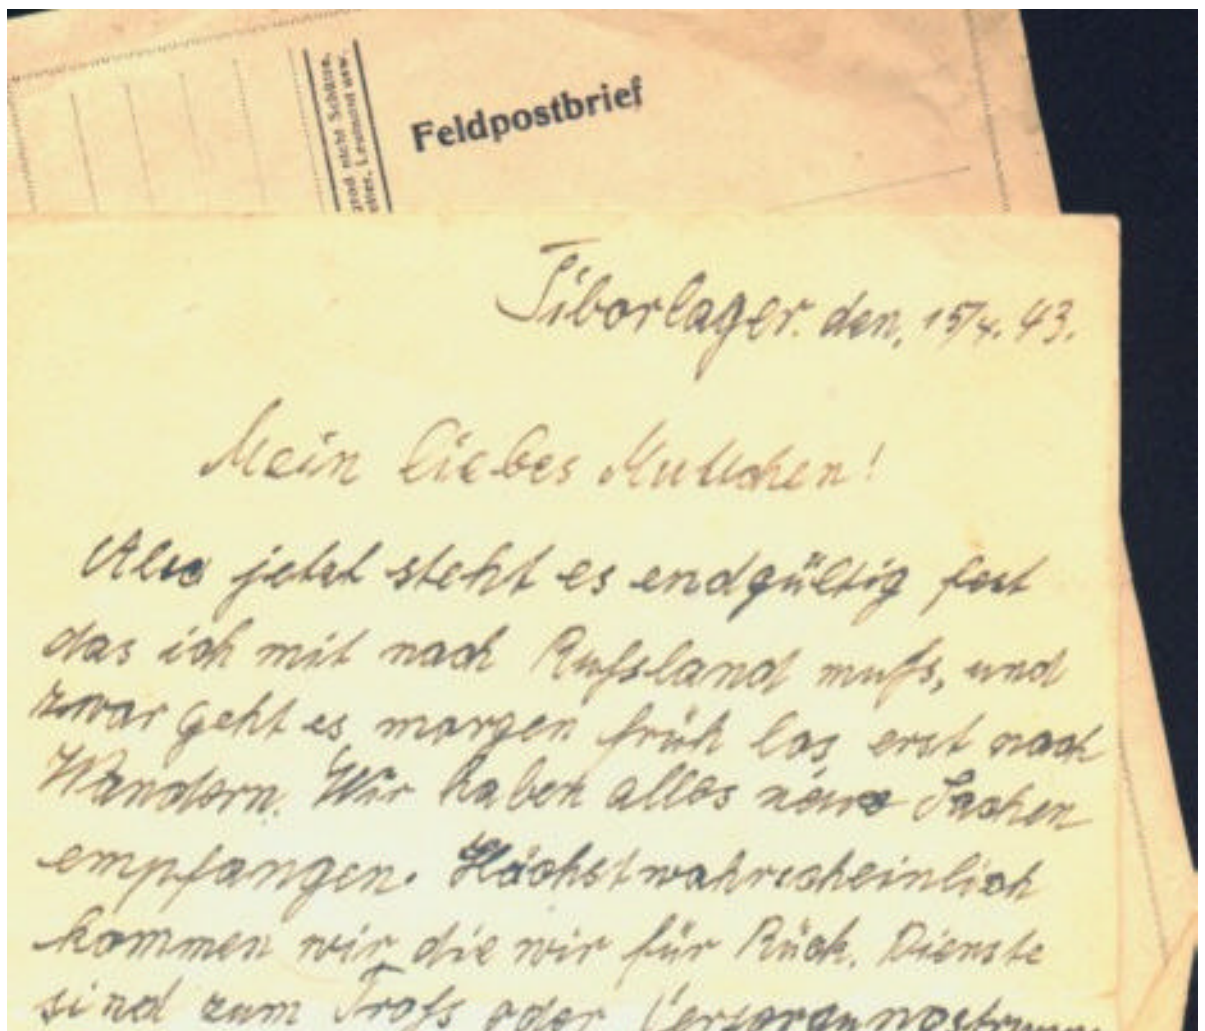 Feldpostbrief
Tiborlager. den, 15/4. 43.
Mein liebes Muttchen!
Also jetzt steht es endgültig fest
das ich mit nach Rußland muß, und
zwar geht es morgen früh los erst nach
Wandern. Wir haben alles neue Sachen
empfangen. Höchstwahrscheinlich
kommen wir, die wir für Rück. Dienste
sind zum Troß oder